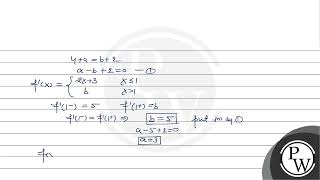 4+a = b+2
a-b+2=0 — ①
f'(x) = { 2x+3 x≤1
b x>1
f'(1-) = 5 f'(1+) = b
f'(1-) = f'(1+) ⇒ b=5 put in eq ①
a-5+2=0
a=3
fo
PW